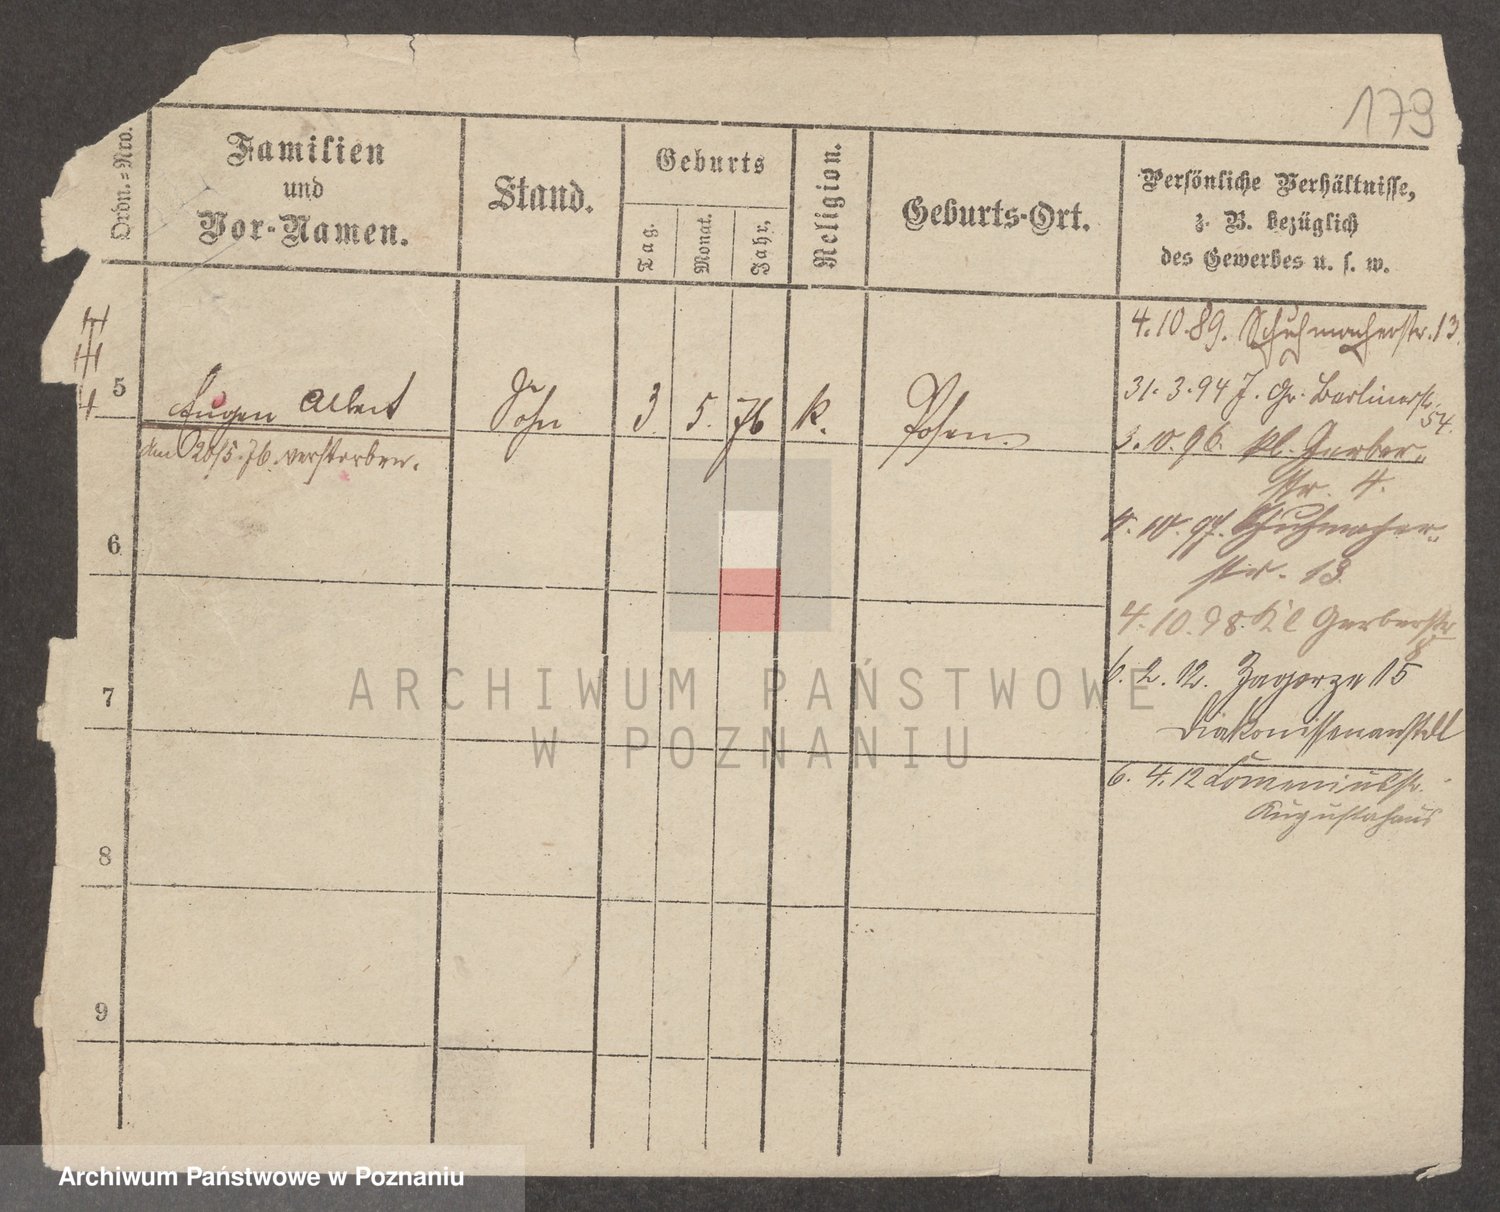 179
Ordn.=Nro.
Familien
und
Vor-Namen.
Stand.
Geburts
Tag.
Monat.
Jahr.
Religion.
Geburts-Ort.
Persönliche Verhältnisse,
z. B. bezüglich
des Gewerbes u. s. w.
5
Eugen Albert
Sohn
3.
5.
76
k.
Posen.
am 20/5.76. verstorben.
4.10.89. Schuhmacherstr. 13.
31.3.94 Gr. Berlinerstr.
54.
3.10.96. kl. Gerber-
str. 4.
4.10.97. Schuhmacher-
str. 13.
4.10.98 Kl Gerberstr
8
6.2.12. Zagorze 15
Diakonissenanstalt
6.4.12 Comeniusstr.
Augustahaus
6
7
8
9
ARCHIWUM PAŃSTWOWE
W POZNANIU
Archiwum Państwowe w Poznaniu